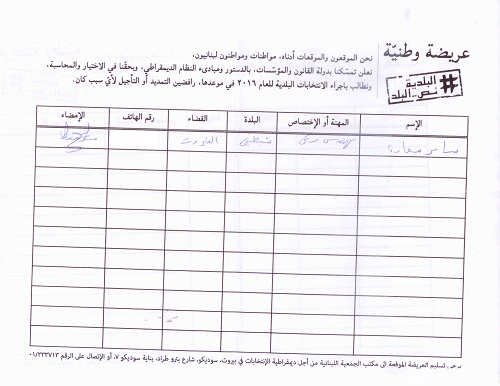 عريضة وطنيّة
#البلدية نص-البلد
نحن الموقعون والموقعات أدناه، مواطنات ومواطنون لبنانيون،
نعلن تمسّكنا بدولة القانون والمؤسّسات، بالدستور ومبادىء النظام الديمقراطي، وبحقّنا في الاختيار والمحاسبة،
ونطالب باجراء الانتخابات البلدية للعام ٢٠١٦ في موعدها، رافضين التمديد أو التأجيل لأيّ سبب كان.
الإسم المهنة أو الإختصاص البلدة القضاء رقم الهاتف الإمضاء
سامر
يرجى تسليم العريضة الموقعة الى مكتب الجمعية اللبنانية من أجل ديمقراطية الإنتخابات في بيروت، سوديكو، شارع بترو طراد، بناية سوديكو ٧، أو الإتصال على الرقم ٠١/٣٣٣٧١٣